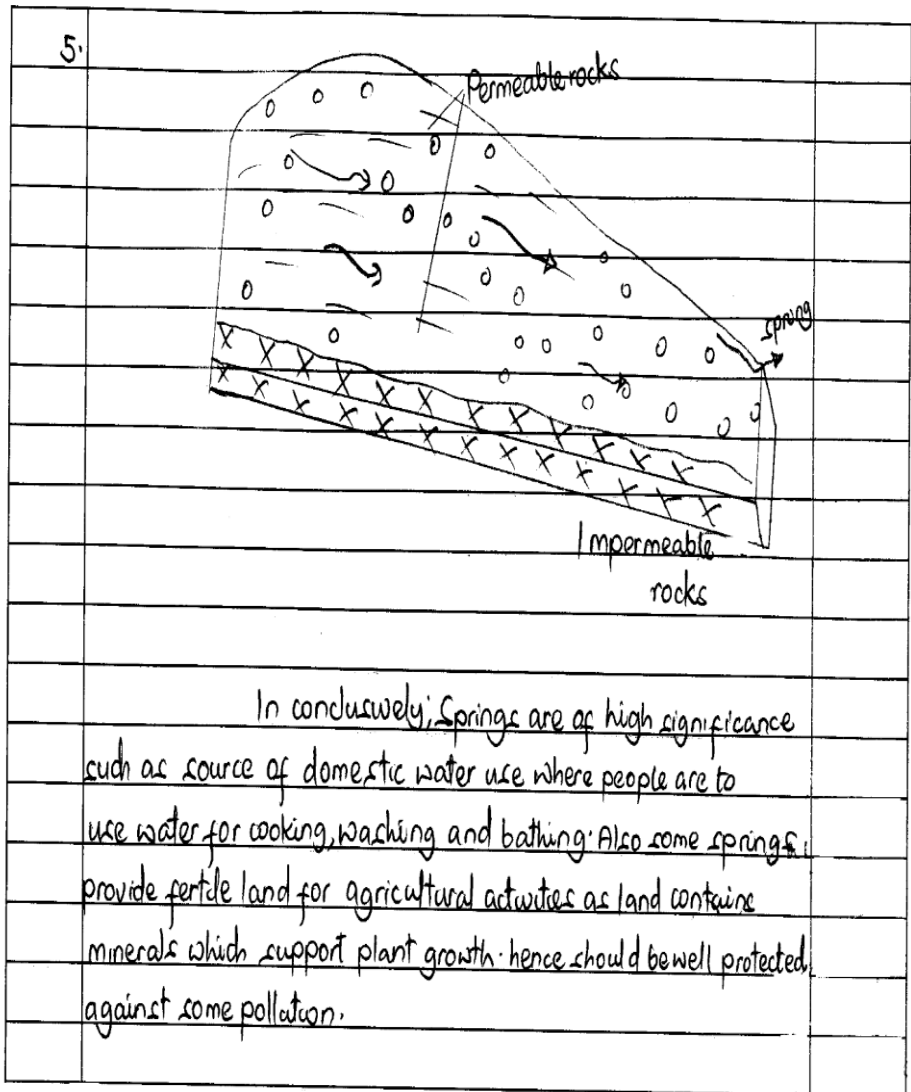 5.
Permeable rocks
spring
Impermeable
rocks
In conclusively; Springs are of high significance
such as source of domestic water use where people are to
use water for cooking, washing and bathing. Also some springs
provide fertile land for agricultural activities as land contains
minerals which support plant growth. hence should be well protected
against some pollution.